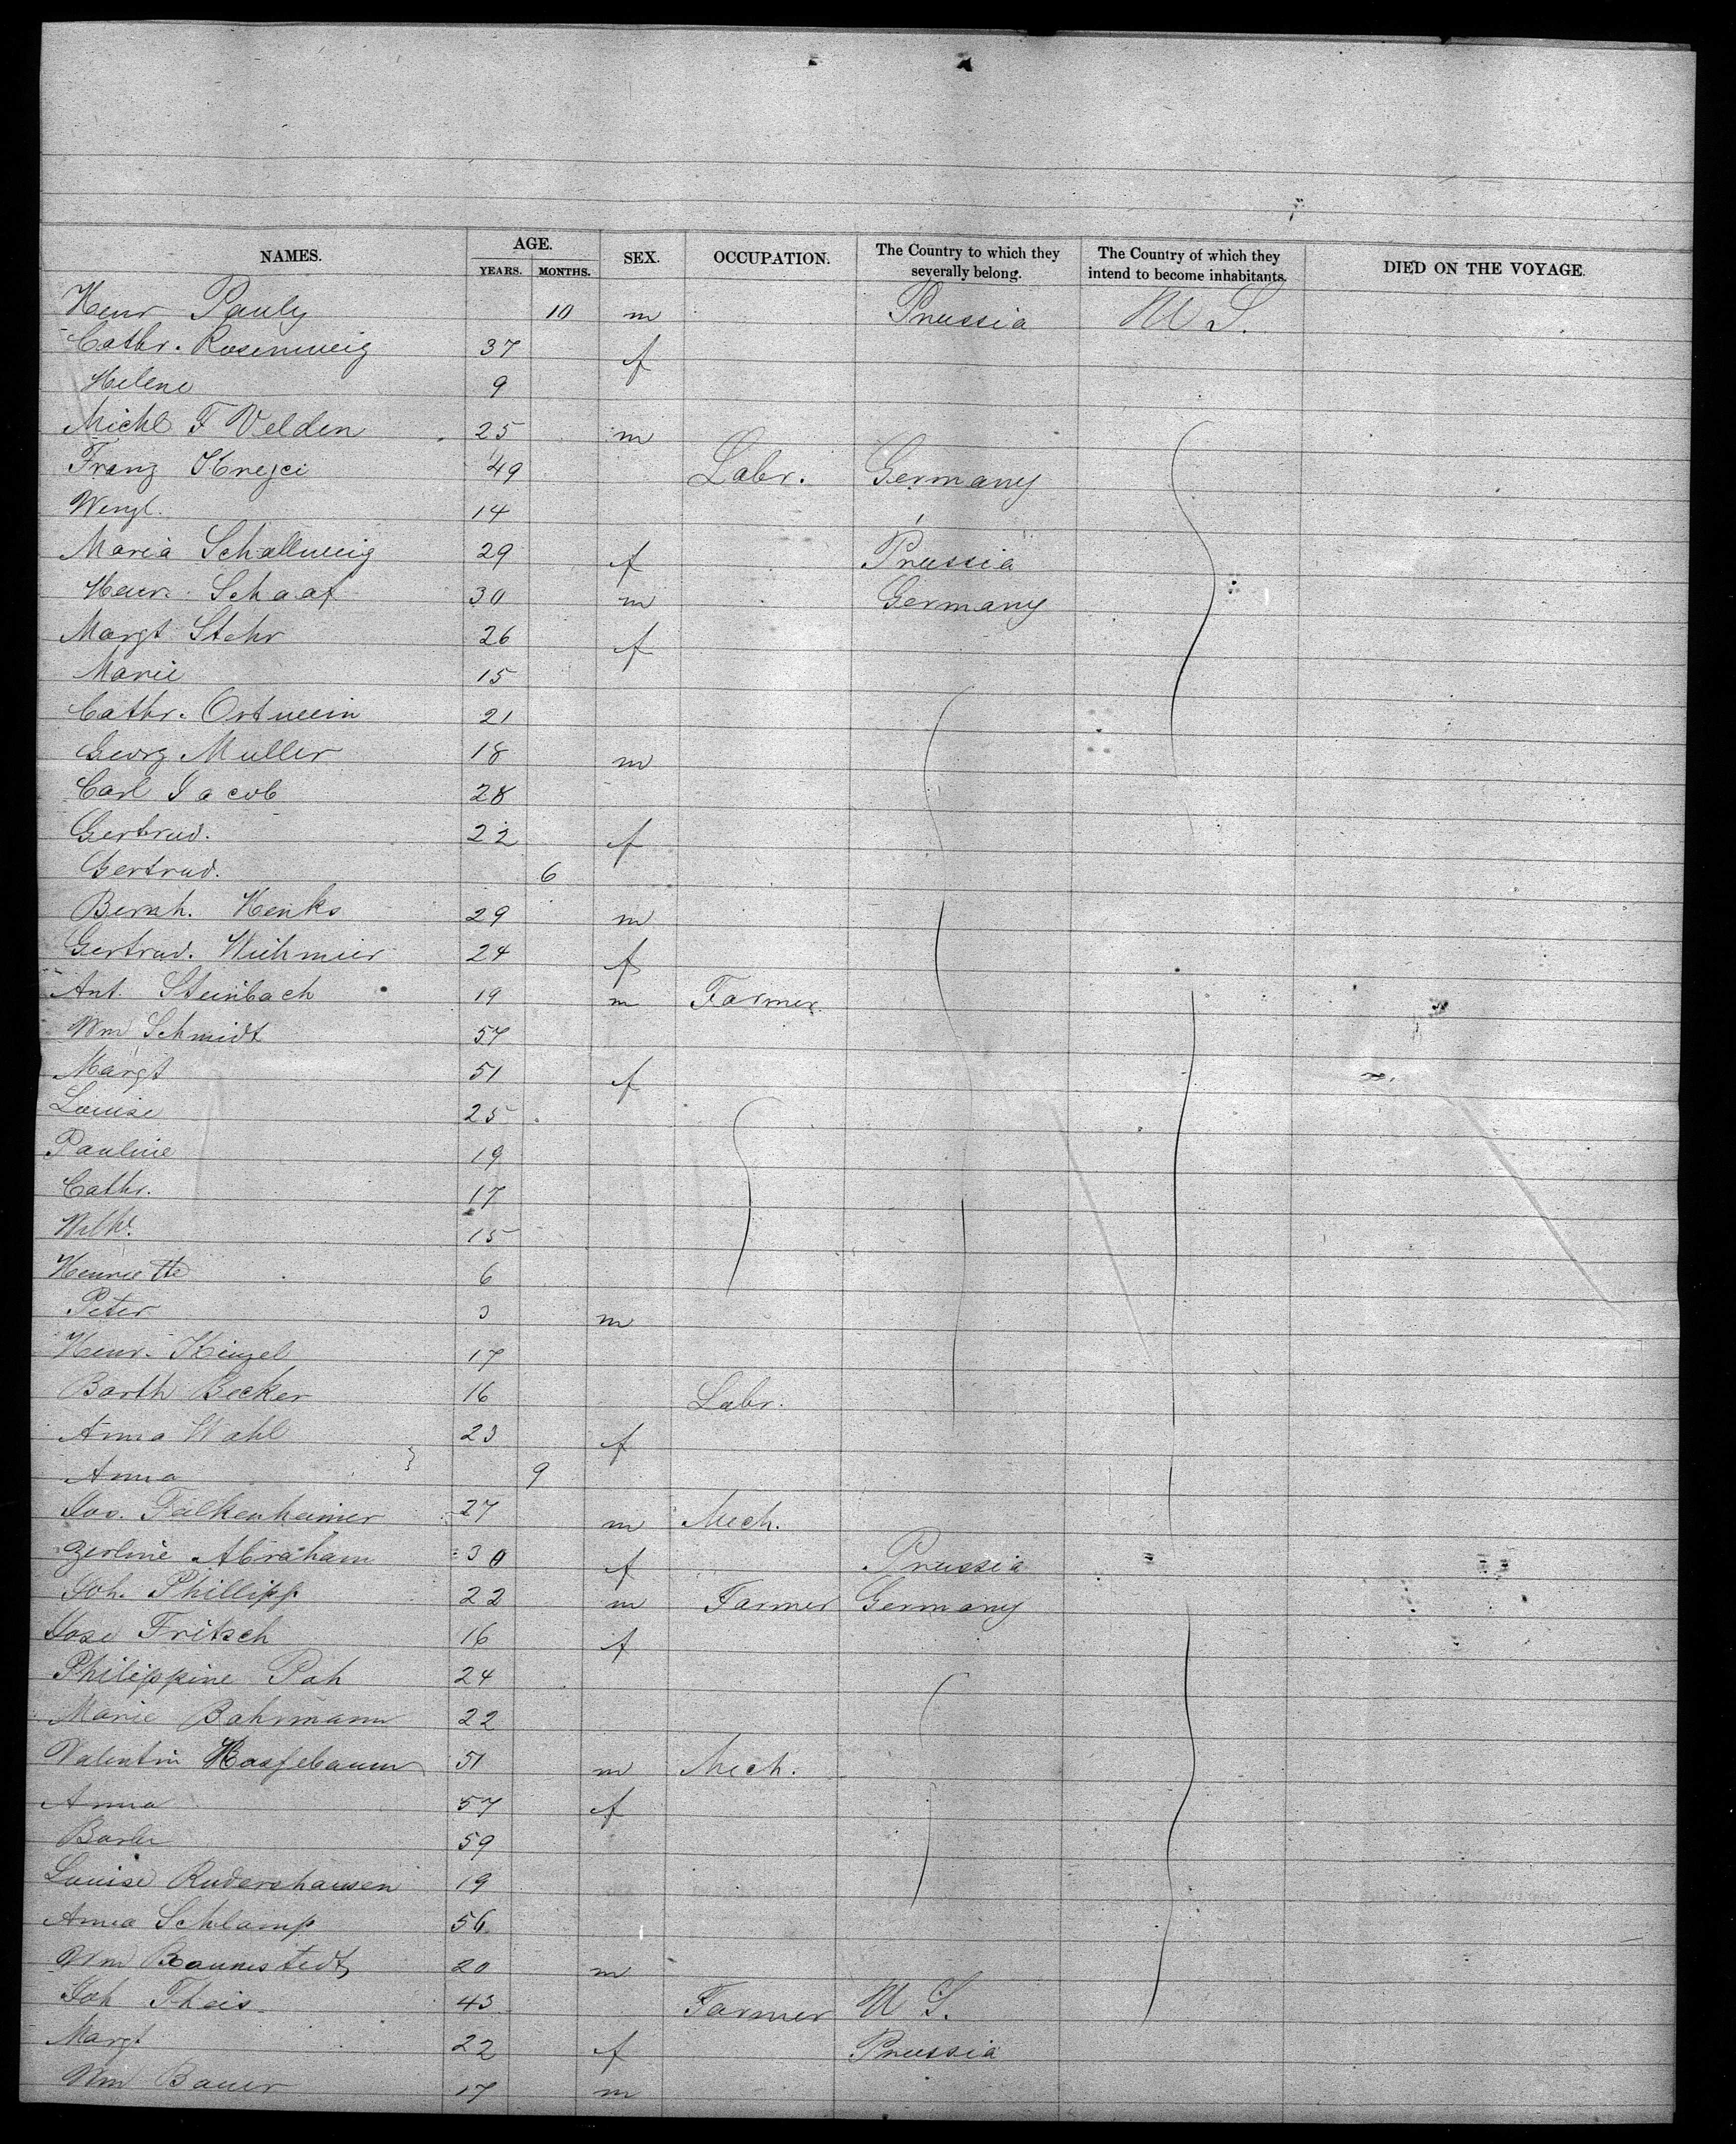 NAMES. AGE. SEX. OCCUPATION. The Country to which they severally belong. The Country of which they intend to become inhabitants. DIED ON THE VOYAGE.
YEARS. MONTHS.
Henr Pauly 10 m Prussia U S.
Cathr. Rosenweig 37 f
Helene 9
Michl F Velden 25 m
Franz Krejci 49 Labr. Germany
Wenzl. 14
Maria Schallweig 29 f Prussia
Henr. Schaaf 30 m Germany
Margt Stehr 26 f
Marie 15
Cathr. Ortwein 21
Georg Muller 18 m
Carl Jacob 28
Gertrud. 22 f
Gertrud. 6
Bernh. Henks 29 m
Gertrud. Wiehmeier 24 f
Ant. Steinbach 19 m Farmer
Wm Schmidt 57
Margt 51 f
Louise 25
Pauline 19
Cathr. 17
Wilhe. 15
Henriette 6
Peter 3 m
Henr. Kinzel 17
Barth Becker 16 Labr.
Anna Wahl 23 f
Anna 9
Jos. Falkenheimer 27 m Mech.
Zerline Abraham 30 f Prussia
Joh. Phillipp 22 m Farmer Germany
Jose Fritsch 16 f
Philippine Pah 24
Marie Bahrmann 22
Valentin Hassebaum 51 m Mech.
Anna 57 f
Barbr 59
Louise Rudershausen 19
Anna Schlamp 56
Wm Baumstedt 20 m
Joh Theis 43 Farmer U S.
Margt 22 f Prussia
Wm Bauer 17 m